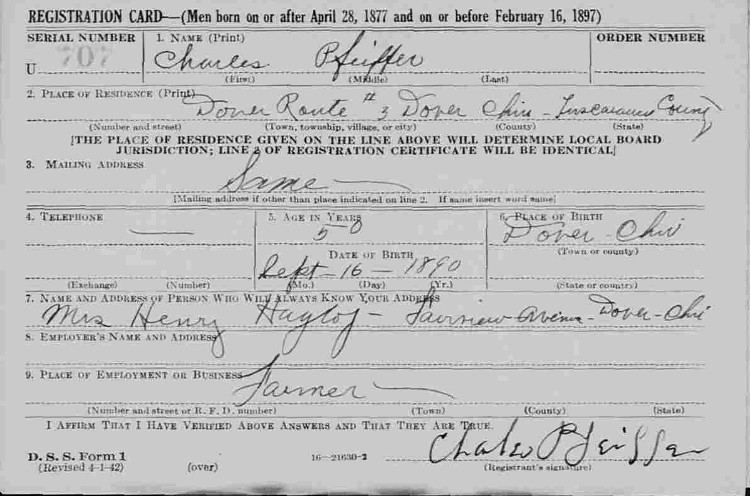 REGISTRATION CARD—(Men born on or after April 28, 1877 and on or before February 16, 1897)
SERIAL NUMBER 1. NAME (Print) ORDER NUMBER
U 707 Charles Pfeiffer
(First) (Middle) (Last)
2. PLACE OF RESIDENCE (Print)
Dover Route # 3 Dover Ohio - Tuscarawas County
(Number and street) (Town, township, village, or city) (County) (State)
[THE PLACE OF RESIDENCE GIVEN ON THE LINE ABOVE WILL DETERMINE LOCAL BOARD
JURISDICTION; LINE 2 OF REGISTRATION CERTIFICATE WILL BE IDENTICAL]
3. MAILING ADDRESS
Same
[Mailing address if other than place indicated on line 2. If same insert word same]
4. TELEPHONE 5. AGE IN YEARS 6. PLACE OF BIRTH
50 Dover - Ohio
DATE OF BIRTH (Town or county)
Sept - 16 - 1890
(Exchange) (Number) (Mo.) (Day) (Yr.) (State or country)
7. NAME AND ADDRESS OF PERSON WHO WILL ALWAYS KNOW YOUR ADDRESS
Mrs Henry - Fairview Avenue - Dover - Ohio
8. EMPLOYER'S NAME AND ADDRESS
9. PLACE OF EMPLOYMENT OR BUSINESS
Farmer
(Number and street or R. F. D. number) (Town) (County) (State)
I AFFIRM THAT I HAVE VERIFIED ABOVE ANSWERS AND THAT THEY ARE TRUE.
D. S. S. Form 1
(Revised 4-1-42) (over) 16—21630-2 Charles Pfeiffer
(Registrant's signature)